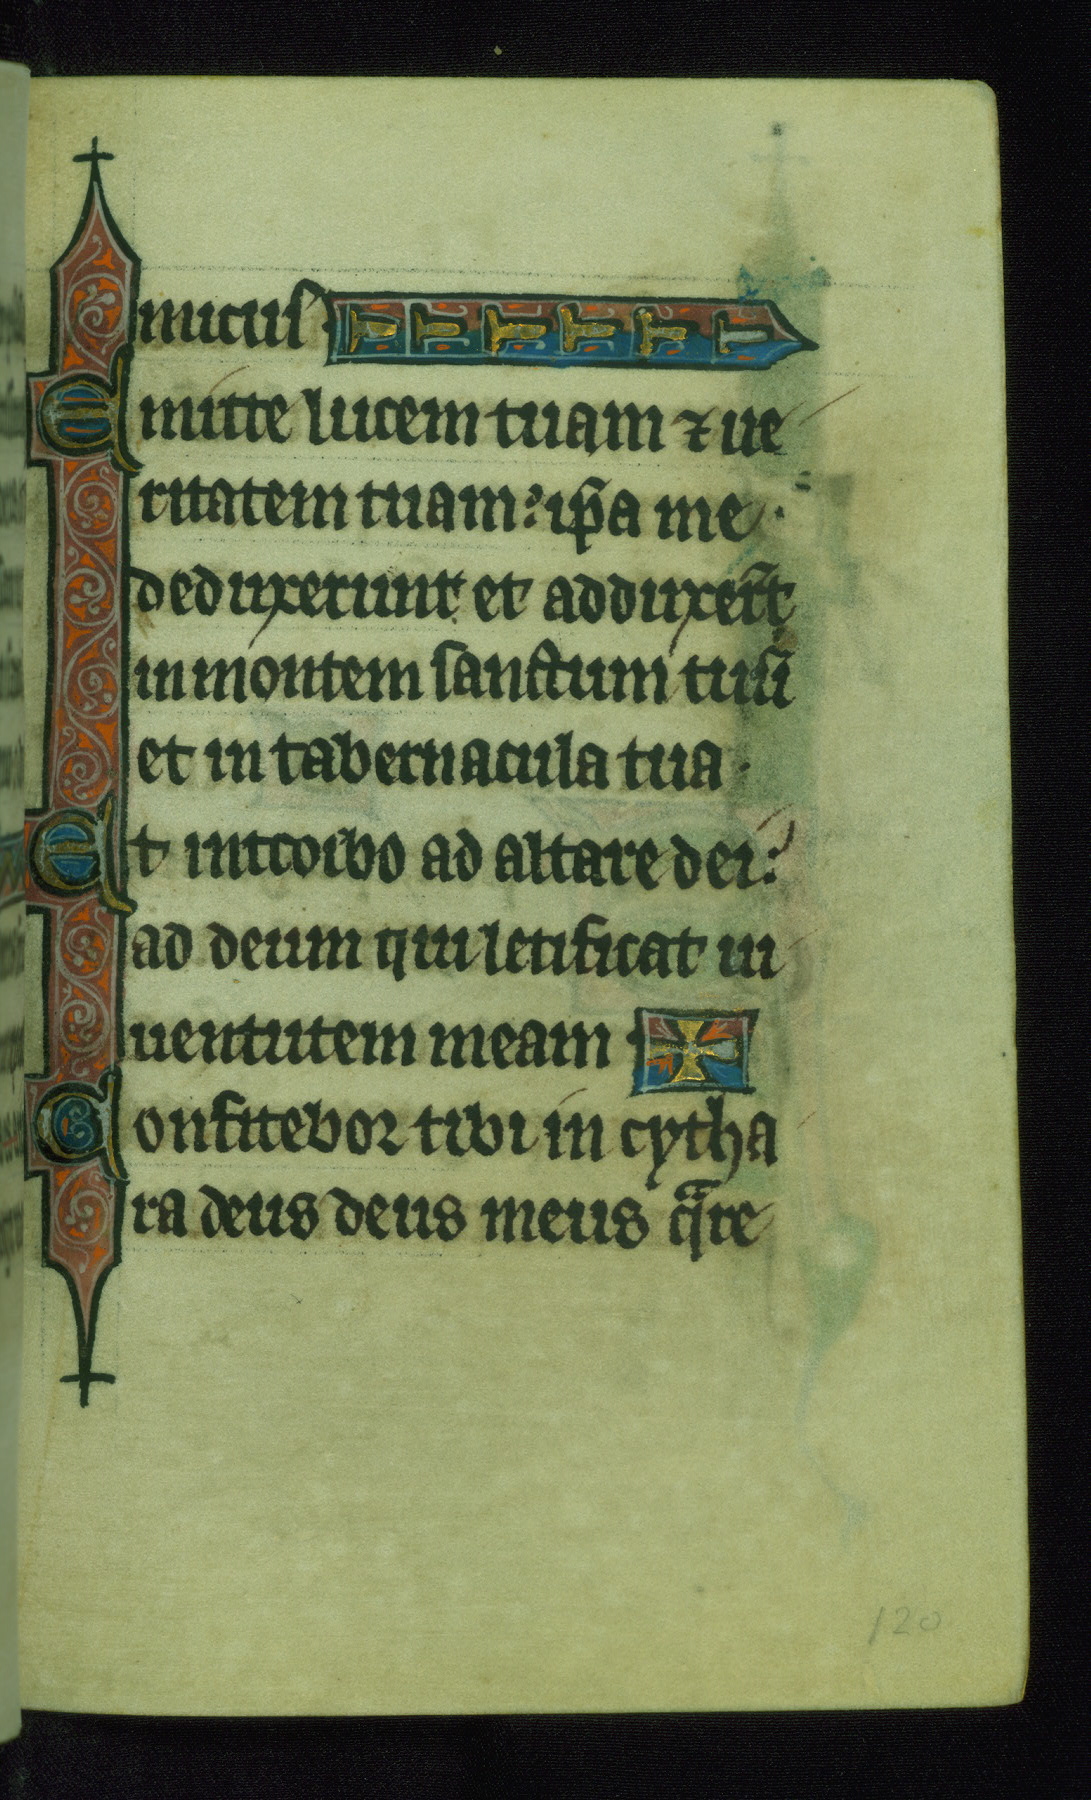 micus
Emitte lucem tuam ⁊ ue
ritatem tuam: ip̄a me
deduxerunt et adduxer̄t
in montem sanctum tuū
et in tabernacula tua.
Et introibo ad altare dei:
ad deum qui letificat iu
uentutem meam
Confitebor tibi in cytha
ra deus deus meus qͣre
120